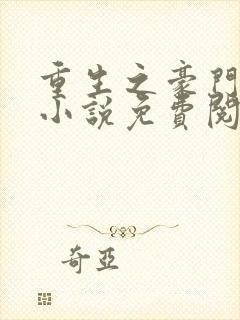 重生之豪門
小說免費閱
奇亞